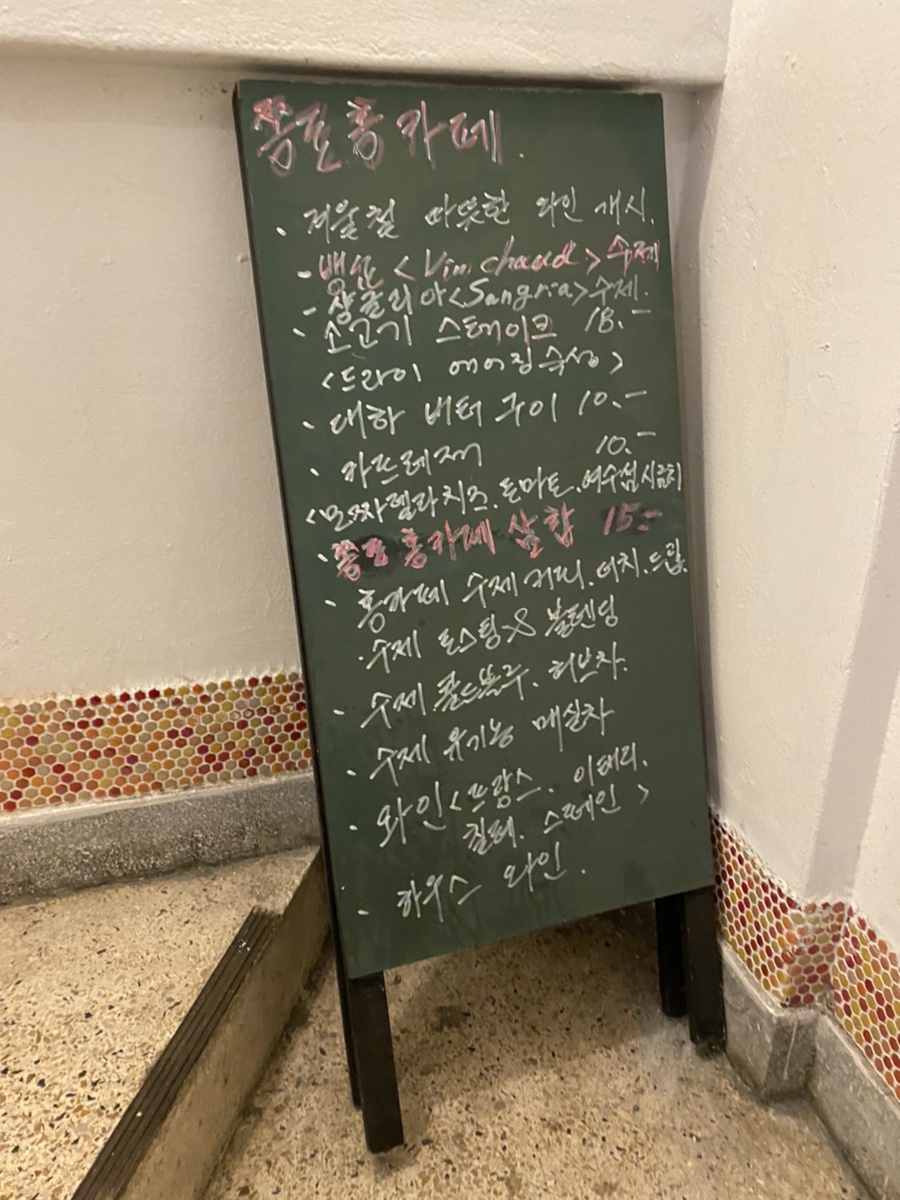 쫑포홍카페.
· 겨울철 따뜻한 와인 개시.
- 뱅쇼 <Vin chaud> 수제
- 샹글리아<Sangria>수제.
· 소고기 스테이크 18.-
<드라이 에이징숙성>
· 대하 버터 구이 10.-
· 카프레제 10.-
<모짜렐라치즈.토마토.여수섬시금치
· 쫑포 홍카페 삼합 15.-
· 홍카페 수제커피.더치.드립.
·수제 로스팅 & 블렌딩
- 수제 콜드브루. 허브차.
· 수제 유기농 매실차
· 와인<프랑스. 이태리.
칠레. 스페인>
· 하우스 와인.